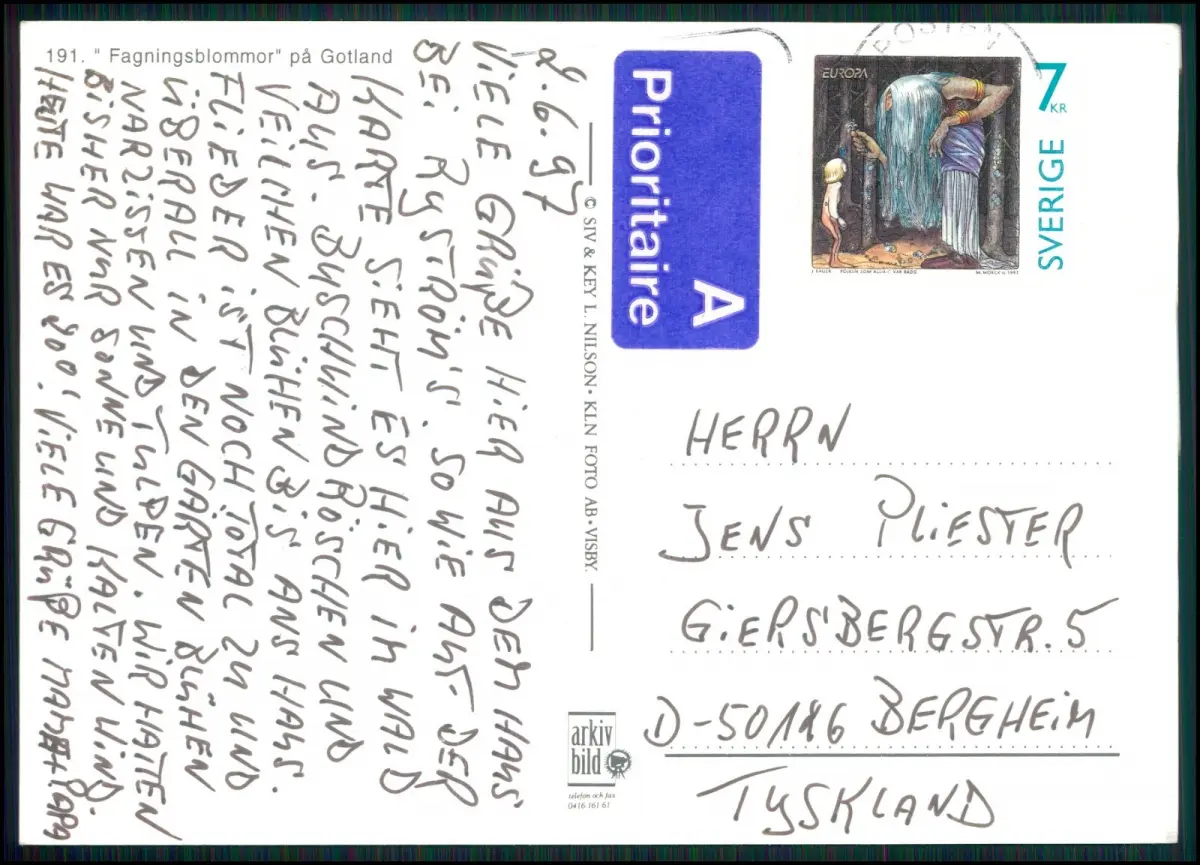 191. " Fagningsblommor" på Gotland
2.6.97
VIELE GRÜßE HIER AUS DEM HAUS
BEI RYSTRÖM'S. SO WIE AUF DER
KARTE SIEHT ES HIER IM WALD
AUS. BUSCHWINDRÖSCHEN UND
VEILCHEN BLÜHEN BIS ANS HAUS.
FLIEDER IST NOCH TOTAL ZU UND
ÜBERALL IN DEN GÄRTEN BLÜHEN
NARZISSEN UND TULPEN. WIR HATTEN
BISHER NUR SONNE UND KALTEN WIND.
HEUTE WAR ES 20°! VIELE GRÜßE MAMA + PAPA
© SIV & KEY L. NILSON • KLN FOTO AB • VISBY.
A
Prioritaire
POSTEN
EUROPA
7
KR
SVERIGE
HERRN
JENS PLIESTER
GIERSBERGSTR. 5
D-50126 BERGHEIM
TYSKLAND
arkiv
bild
telefon och fax
0416 161 61